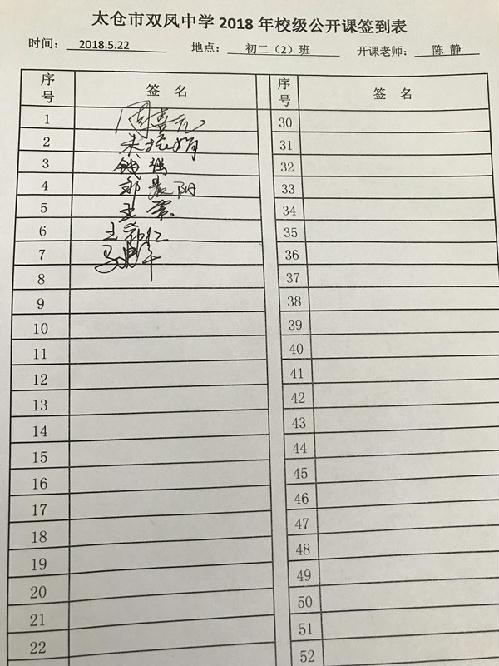 太仓市双凤中学 2018 年校级公开课签到表
时间： 2018.5.22 地点： 初二（2）班 开课老师： 陈 静
序号 签 名 序号 签 名
1 30
2 31
3 钱强 32
4 33
5 34
6 35
7 36
8 37
9 38
10 39
11 40
12 41
13 42
14 43
15 44
16 45
17 46
18 47
19 48
20 49
21 50
22 51
52